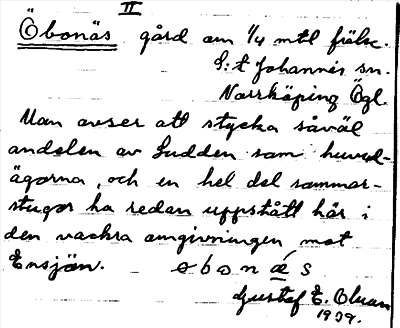 II
Öbonäs gård om 1/4 mtl frälse.
S:t Johannis sn.
Norrköping Ögl.
Man avser att stycka såväl
andelen av Sudden som huvud-
ägorna, och en hel del sommar-
stugor ha redan uppstått här i
den vackra omgivningen mot
Ensjön. obonǽs
Gustaf E.
1939.